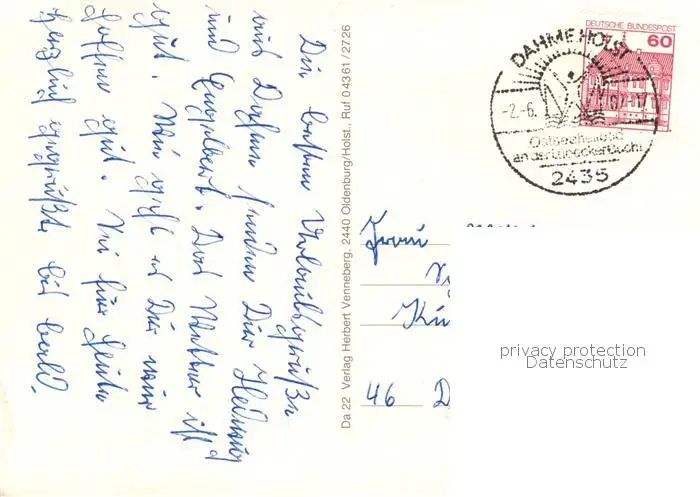 Die besten Urlaubsgrüße
aus Dahme senden Dir Hedwig
und Engelbert. Das Wetter ist
gut. Wie geht es Dir wir
hoffen gut. Bis für heute
herzlich gegrüßt bis bald.
Da.22 Verlag Herbert Venneberg, 2440 Oldenburg/Holst., Ruf 04361/2726
DEUTSCHE BUNDESPOST
60
DAHME HOLST
-2.-6.
Ostseeheilbad
an der Lübecker Bucht
2435
Frau
46 D
privacy protection
Datenschutz